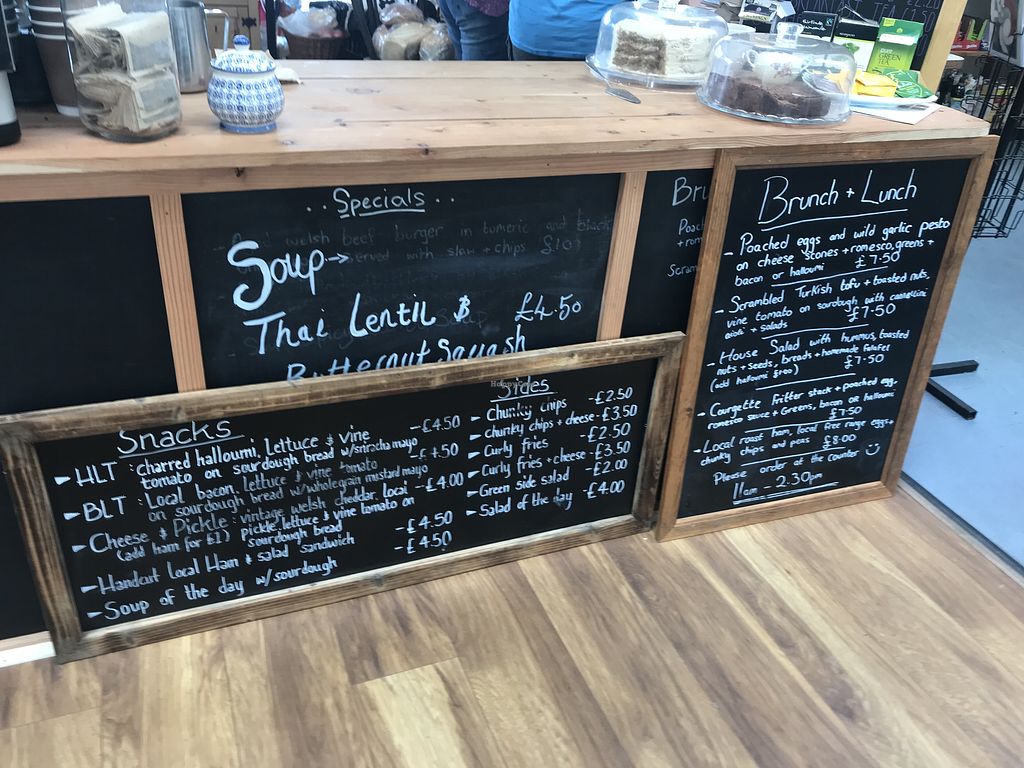 ..Specials..
Soup→
Thai Lentil & £4.50
Butternut Squash
welsh beef burger in tumeric and black
served with slaw + chips £10
Snacks
HLT : charred halloumi, lettuce & vine -£4.50
tomato on sourdough bread w/sriracha mayo
BLT : Local bacon, lettuce & vine tomato -£4.50
on sourdough bread w/wholegrain mustard mayo
Cheese & Pickle : vintage welsh cheddar, local -£4.00
pickle, lettuce & vine tomato on
(add ham for £1) sourdough bread
Handcut Local Ham & salad sandwich -£4.50
Soup of the day w/sourdough -£4.50
Sides
Chunky chips -£2.50
Chunky chips + cheese -£3.50
Curly fries -£2.50
Curly fries + cheese -£3.50
Green side salad -£2.00
Salad of the day -£4.00
Bru
Poach
+ rom
Scram
Brunch + Lunch
- Poached eggs and wild garlic pesto
on cheese scones + romesco, greens +
bacon or halloumi £7.50
- Scrambled Turkish tofu + toasted nuts,
vine tomato on sourdough with cannellini
aioli + salads £7.50
- House Salad with hummus, toasted
nuts + seeds, breads + homemade falafel
(add halloumi £1.00) £7.50
- Courgette fritter stack + poached egg,
romesco sauce + Greens, bacon or halloumi
£7.50
- Local roast ham, local free range eggs +
chunky chips and peas £8.00
Please order at the counter
11am - 2.30pm
GREEN TEA
HappyCow